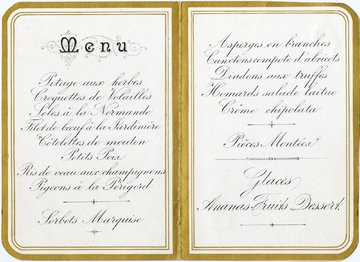 Menu
Potage aux herbes
Croquettes de Volailles
Soles à la Normande
Filet de bœuf à la Jardinière
Côtelettes de mouton
Petits Pois
Ris de veau aux champignons
Pigeons à la Périgord
Sorbets Marquise
Asperges en branches
Canetons compote d'abricots
Dindons aux truffes
Homards salade laitue
Crême chipolata
Pièces Montées
Glaces
Ananas-Fruits Dessert